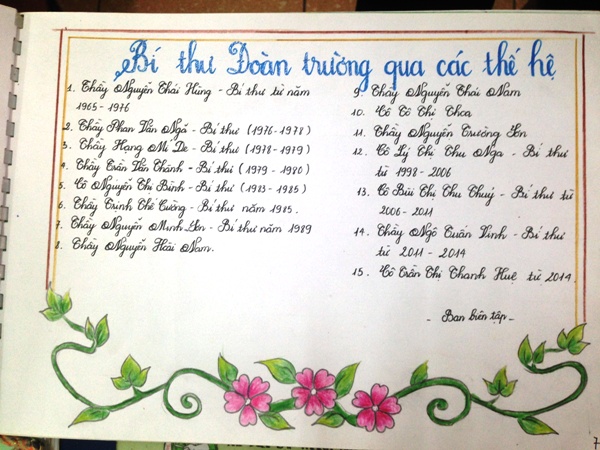 Bí thư Đoàn trường qua các thế hệ
1. Thầy Nguyễn Thái Hùng - Bí thư từ năm
1965 - 1976
2. Thầy Phan Văn Ngã - Bí thư (1976-1978)
3. Thầy Hạng Mí De - Bí thư (1978-1979)
4. Thầy Trần Văn Thành - Bí thư (1979 - 1980)
5. Cô Nguyễn Thị Bình - Bí thư (1983-1985)
6. Thầy Trịnh Thế Cường - Bí thư năm 1985.
7. Thầy Nguyễn Minh Sơn - Bí thư năm 1989
8. Thầy Nguyễn Hoài Nam.
9. Thầy Nguyễn Thái Nam
10. Cô Tô Thị Thoa
11. Thầy Nguyễn Trường Sơn
12. Cô Lý Thị Thu Nga - Bí thư
từ 1998 - 2006
13. Cô Bùi Thị Thu Thuỷ - Bí thư từ
2006 - 2011
14. Thầy Ngô Tuấn Vinh - Bí thư
từ 2011 - 2014
15. Cô Trần Thị Thanh Huệ từ 2014.
- Ban biên tập -
7